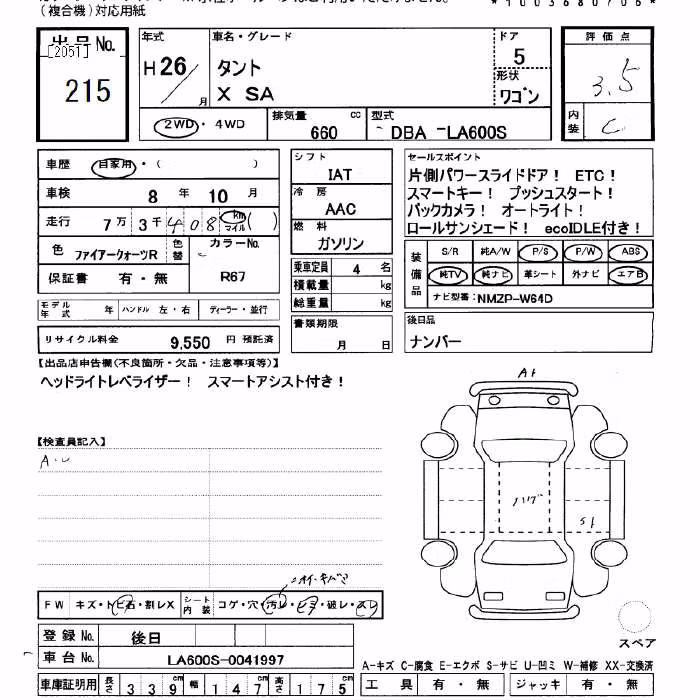 (複合機)対応用紙
*1003680706*
出品No.
[2051]
215
年式
H26/
月
車名・グレード
タント
X SA
ドア
5
形状
ワゴン
評価点
3.5
内装
C
2WD・4WD
排気量 660 cc
型式 DBA-LA600S
車歴 自家用・( )
車検 8年 10月
走行 7万3千408 km マイル ( )
色 ファイアークォーツR 色替
カラーNo. R67
保証書 有・無
モデル年式 年 ハンドル 左・右 ディーラー・並行
リサイクル料金 9,550 円 預託済
シフト
IAT
冷房
AAC
燃料
ガソリン
乗車定員 4 名
積載量 kg
総重量 kg
書類期限
月 日
セールスポイント
片側パワースライドドア! ETC!
スマートキー! プッシュスタート!
バックカメラ! オートライト!
ロールサンシェード! ecoIDLE付き!
装備品
S/R 純A/W P/S P/W ABS
純TV 純ナビ 革シート 外ナビ エアB
ナビ型番:NMZP-W64D
後日品
ナンバー
【出品店申告欄(不良箇所・欠品・注意事項等)】
ヘッドライトレベライザー! スマートアシスト付き!
【検査員記入】
A・U
A1
S1
FW キズ・トビ石・割レX
シート内装 コゲ・穴・汚レ・シミ・破レ・スレ
登録No. 後日
車台No. LA600S-0041997
車庫証明用 長さ 339cm 幅 147cm 高さ 175cm
スペア
A-キズ C-腐食 E-エクボ S-サビ U-凹ミ W-補修 XX-交換済
工具 有・無 ジャッキ 有・無